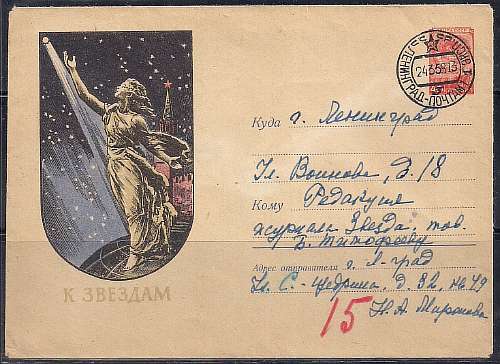 К ЗВЕЗДАМ
ЛЕНИНГРАД-ПОЧТАМТ
Куда г. Ленинград
Ул. Воинова, д. 18
Кому Редакция
журнала Звезда, тов.
Б. Тимофееву
Адрес отправителя г. Л-град
Ул. С-Щедрина. д. 32, кв. 49
Н. А. Миронова
15